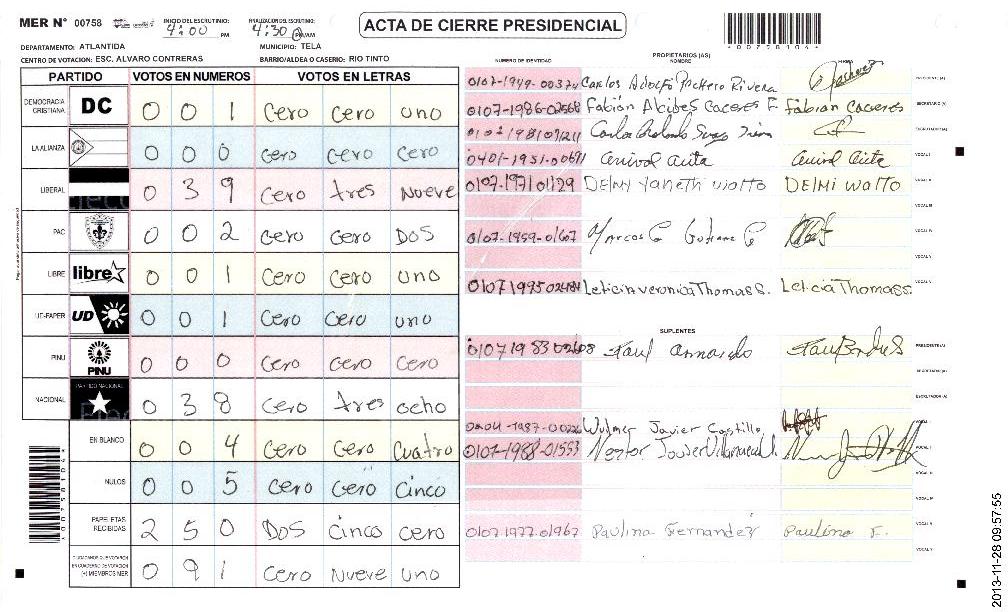 MER N° 00758
INICIO DEL ESCRUTINIO: 4:00 PM
FINALIZACIÓN DEL ESCRUTINIO: 4:30 PM/AM
ACTA DE CIERRE PRESIDENCIAL
*00758104*
DEPARTAMENTO: ATLANTIDA
MUNICIPIO: TELA
CENTRO DE VOTACION: ESC. ALVARO CONTRERAS
BARRIO/ALDEA O CASERIO: RIO TINTO
PARTIDO VOTOS EN NUMEROS VOTOS EN LETRAS
DEMOCRACIA CRISTIANA DC 0 0 1 Cero Cero uno
LA ALIANZA 0 0 0 Cero Cero Cero
LIBERAL 0 3 9 Cero tres Nueve
PAC 0 0 2 Cero Cero Dos
LIBRE libre 0 0 1 Cero Cero uno
UD-FAPER UD 0 0 1 Cero Cero uno
PINU PINU 0 0 0 Cero Cero Cero
NACIONAL PARTIDO NACIONAL 0 3 8 Cero tres ocho
EN BLANCO 0 0 4 Cero Cero Cuatro
NULOS 0 0 5 Cero Cero Cinco
PAPELETAS RECIBIDAS 2 5 0 Dos Cinco cero
CIUDADANOS QUE VOTARON EN CUADERNO DE VOTACION (+) MIEMBROS MER 0 9 1 Cero Nueve uno
PROPIETARIOS (AS)
NUMERO DE IDENTIDAD NOMBRE FIRMA
0107-1949-00374 Carlos Adolfo Pacheco Rivera PRESIDENTE (A)
0107-1986-02568 Fabián Alcides Caceres F. Fabian Caceres SECRETARIO (A)
Carlos ESCRUTADOR (A)
0401-1951-00691 VOCAL I
0107-1971 01129 DELMI Yaneth DELMI VOCAL II
VOCAL III
0107-1959-01607 Marcos VOCAL IV
VOCAL V
0107 1995 02484 Leticia veronica Thomas S. Leticia Thomas S. VOCAL V
SUPLENTES
PRESIDENTE (A)
SECRETARIO (A)
ESCRUTADOR (A)
Wilmer Javier Castillo VOCAL I
0107-1988-01553 Nestor Javier VOCAL II
VOCAL IV
0107-1977-01967 Paulina Fernandez Paulina F. VOCAL V
VOCAL V
2013-11-28 09:57:55